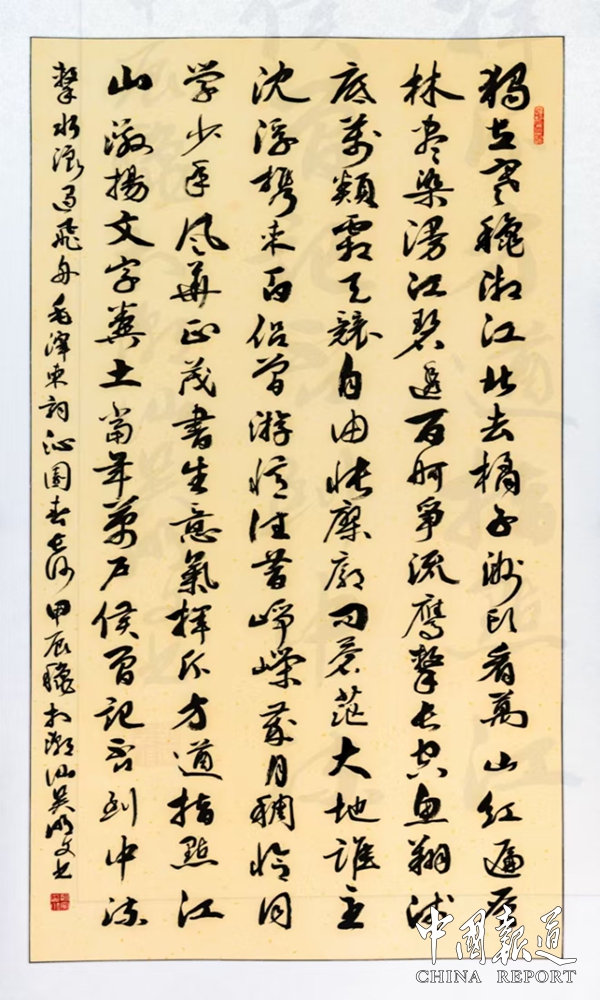 獨立寒穐湘江北去橘子洲頭看萬山紅遍層
林盡染漫江碧透百舸爭流鷹擊長空魚翔淺
底萬類霜天競自由悵寥廓問蒼茫大地誰主
沈浮攜來百侶曾游憶往昔崢嶸歲月稠恰同
學少年風華正茂書生意氣揮斥方遒指點江
山激揚文字糞土當年萬户侯曾記否到中流
擊水浪遏飛舟毛澤東詞沁園春長沙甲辰穐於潮汕吳文書
中國報道
CHINA REPORT